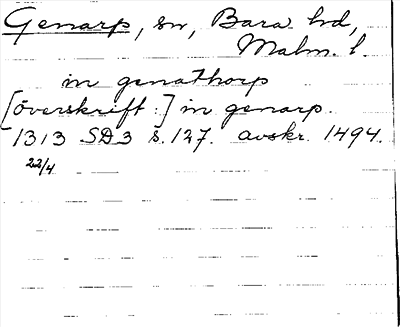 Genarp, sn, Bara hd,
Malm. l.
in genathorp
[överskrift:] in genarp.
1313 SD3 s. 127. avskr. 1494.
22/4